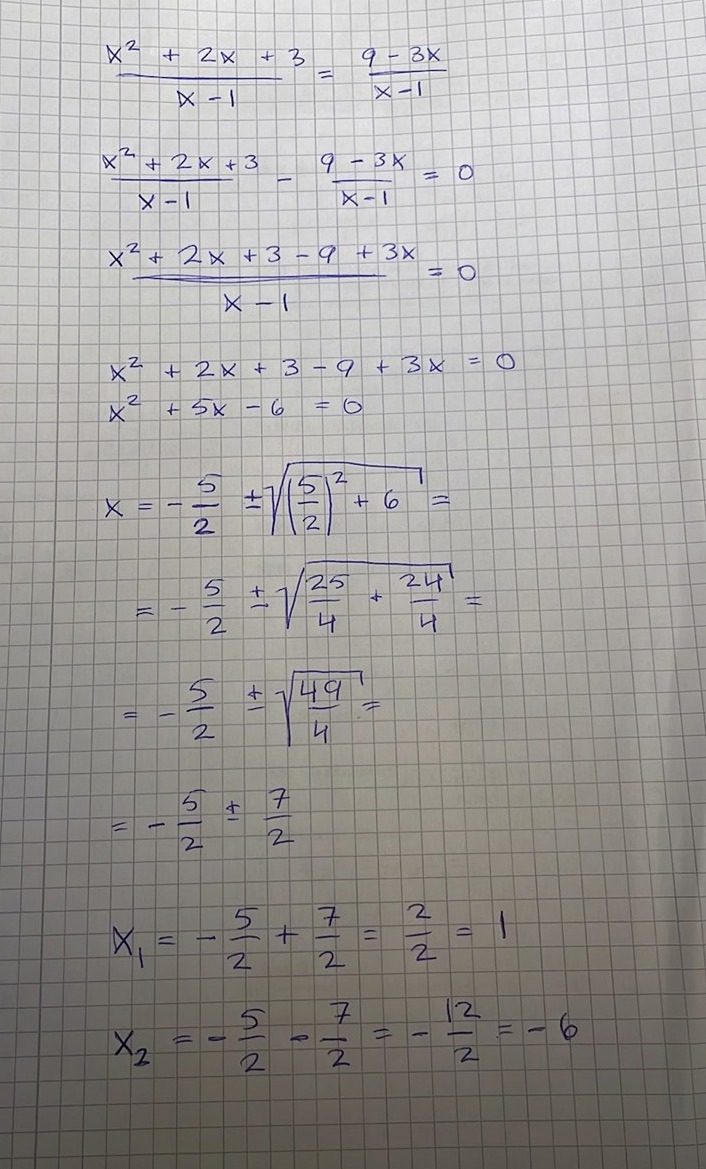 (x² + 2x + 3)/(x - 1) = (9 - 3x)/(x - 1)
(x² + 2x + 3)/(x - 1) - (9 - 3x)/(x - 1) = 0
(x² + 2x + 3 - 9 + 3x)/(x - 1) = 0
x² + 2x + 3 - 9 + 3x = 0
x² + 5x - 6 = 0
x = - 5/2 ± √((5/2)² + 6) =
= - 5/2 ± √(25/4 + 24/4) =
= - 5/2 ± √(49/4) =
= - 5/2 ± 7/2
x₁ = - 5/2 + 7/2 = 2/2 = 1
x₂ = - 5/2 - 7/2 = - 12/2 = - 6